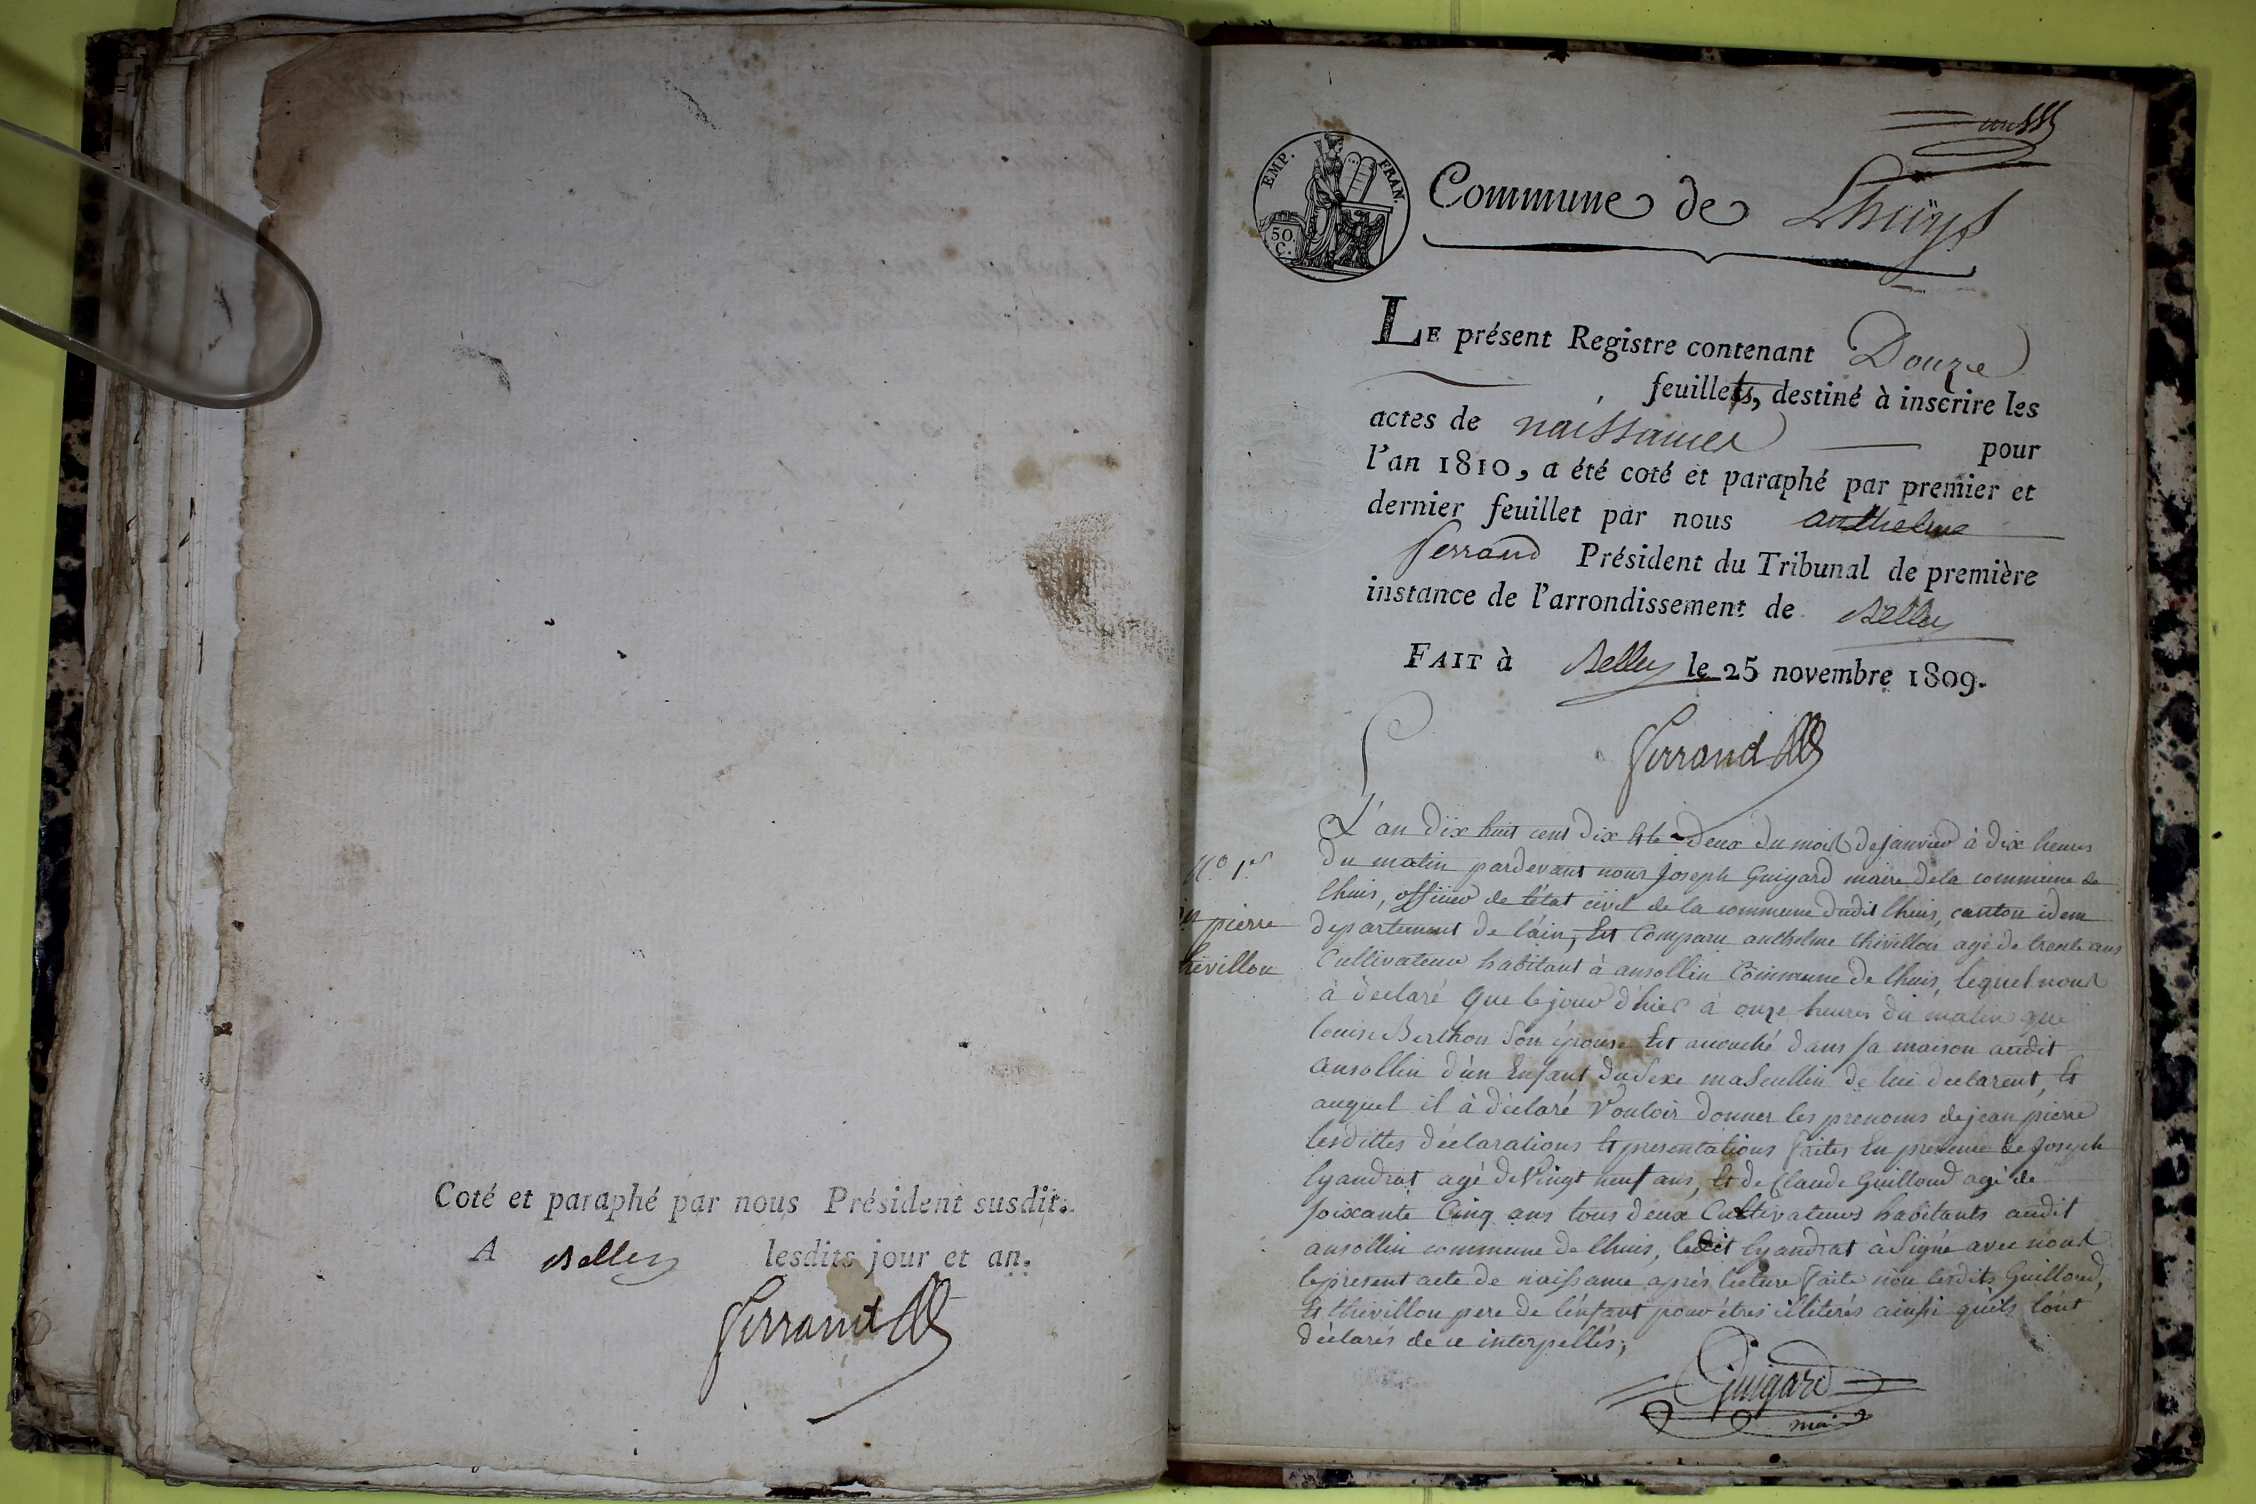 Coté et paraphé par nous Président susdit.
A Belley lesdits jour et an.
Ferrand
un
EMP. FRAN.
50.
C.
Commune de Lhuys
LE présent Registre contenant Douze
feuillets, destiné à inscrire les
actes de naissances pour
l'an 1810, a été coté et paraphé par premier et
dernier feuillet par nous anthelme
ferrand Président du Tribunal de première
instance de l'arrondissement de Belley
FAIT à Belley le 25 novembre 1809.
Ferrand
N° 1er
pierre
thevillon
L'an dix huit cent dix et le deux du mois de janvier à dix heures
du matin pardevant nous Joseph Guigard maire de la commune de
lhuis, officier de l'état civil de la commune dudit lhuis, canton idem
departement de l'ain, Est Comparu anthelme thivillon agé de trente ans
Cultivateur habitant à ansollin Commune de lhuis, lequel nous
à déclaré que le jour d'hier à onze heures du matin que
louise Berthon Son épouse Est accouché dans sa maison audit
ansollin d'un Enfant du Sexe mascullin de lui declarent, Et
auquel il à déclaré Vouloir donner les prenoms de jean pierre
lesdittes déclarations Et presentations faites En presence de Joseph
lyandrat agé de Vingt neuf ans, Et de Claude Guilloud agé de
soixante Cinq ans tous deux Cultivateurs habitants audit
ansollin commune de lhuis, ledit lyandrat à Signé avec nous
le present acte de naissance après lecture faite non lesdits Guilloud,
Et thivillon pere de l'enfant pour êtres illiterés ainsi qu'ils l'ont
déclarés de ce interpellés;
Guigard
maire